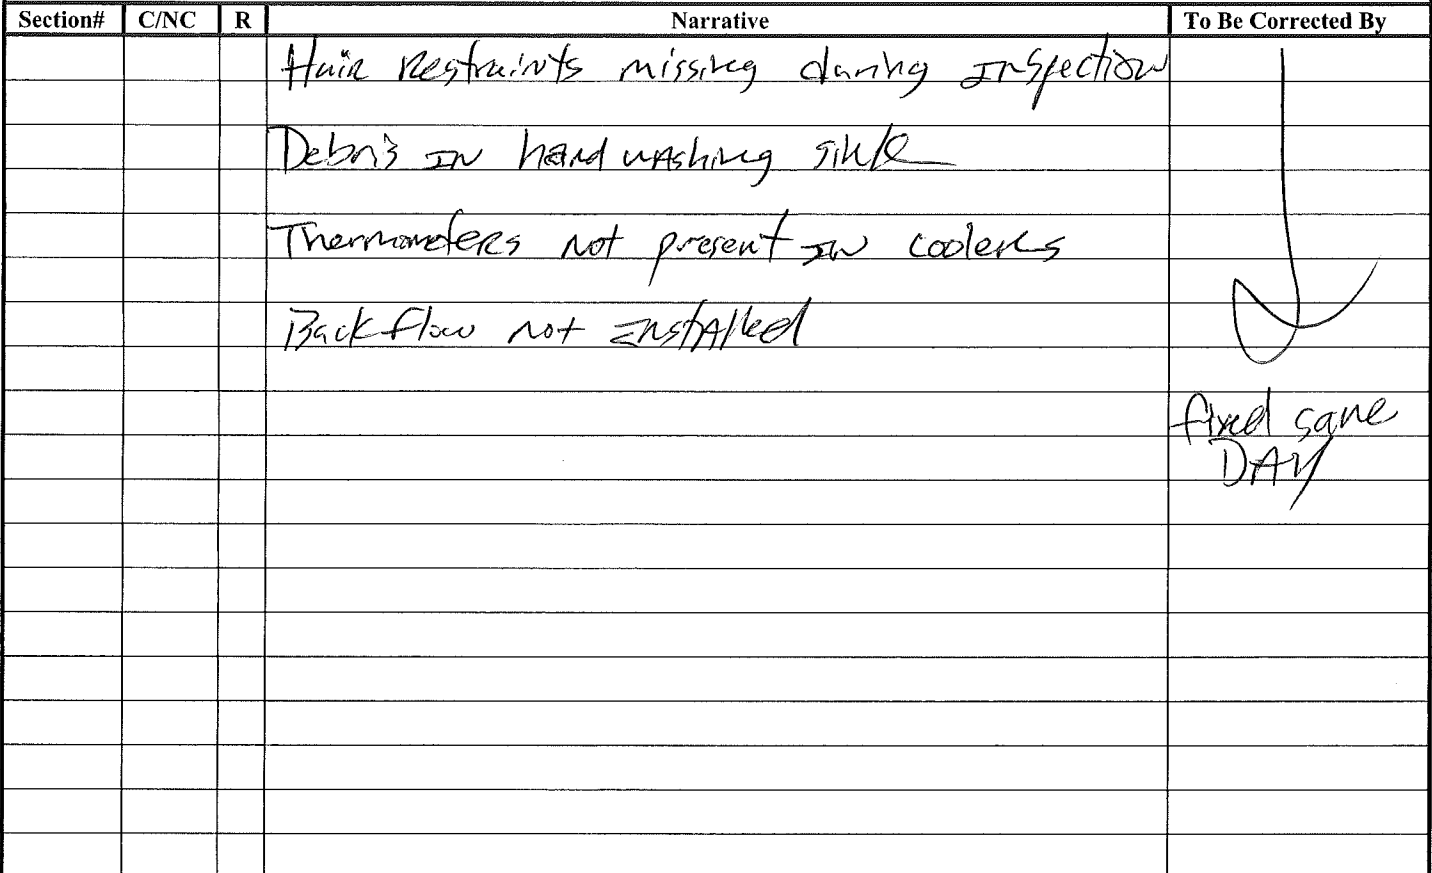 Section# C/NC R Narrative To Be Corrected By
Hair Restraints missing during Inspection
Debris IN hand washing sink
Thermometers not present IN coolers
Backflow not Installed
fixed same
DAY